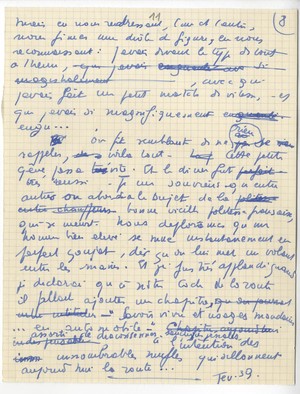 11
8
mais en nous redressant, l'un et l'autre,
nous fîmes une drôle de figure, en nous
reconnaissant : j'avais devant le type de tout
à l'heure, avec qui
j'avais fait un petit match de vitesse, et
que j'avais si magnifiquement
engu...
On fit semblant de ne rien se
rappeler, et voilà tout. Cette petite
gêne passa vite. Et le dîner fut
très réussi. Je me souviens qu'entre
autres on aborda le sujet de la
bonne vieille politesse française,
qui se meurt. Nous déplorâmes qu'un
homme bien élevé se mue instantanément en
parfait goujat, dès qu'on lui met un volant
entre les mains. Et je fus très applaudi quand
je déclarai qu'à notre code de la route
il fallait ajouter un chapitre,
Savoir vivre et usages mondains
... en automobile
à l'intention des
innombrables mufles qui sillonnent
aujourd'hui la route...
Fev. 39.